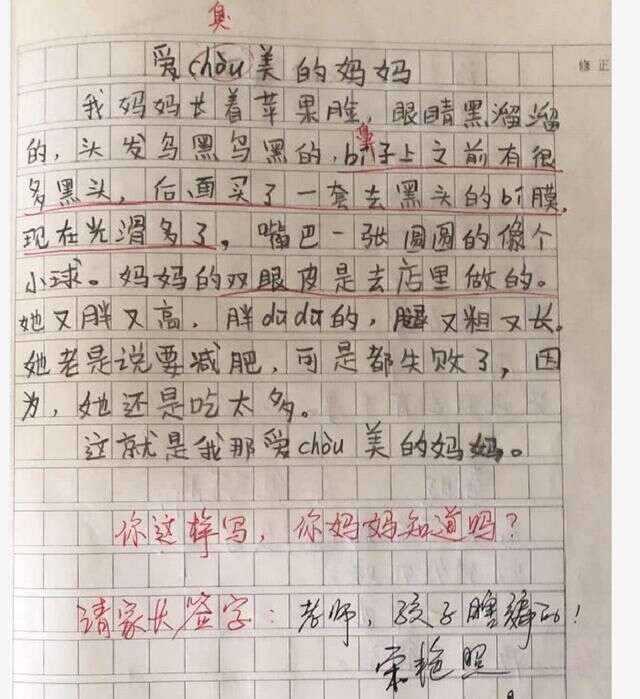 臭
爱chòu美的妈妈
修正
我妈妈长着苹果脸，眼睛黑溜溜
鼻
的，头发乌黑乌黑的，bí子上之前有很
多黑头，后面买了一套去黑头的bí膜，
现在光滑多了，嘴巴一张圆圆的像个
小球。妈妈的双眼皮是去店里做的。
她又胖又高，胖dūdū的，腿又粗又长。
她老是说要减肥，可是都失败了，因
为，她还是吃太多。
这就是我那爱chòu美的妈妈。
你这样写，你妈妈知道吗？
请家长签字：老师，孩子瞎编的！